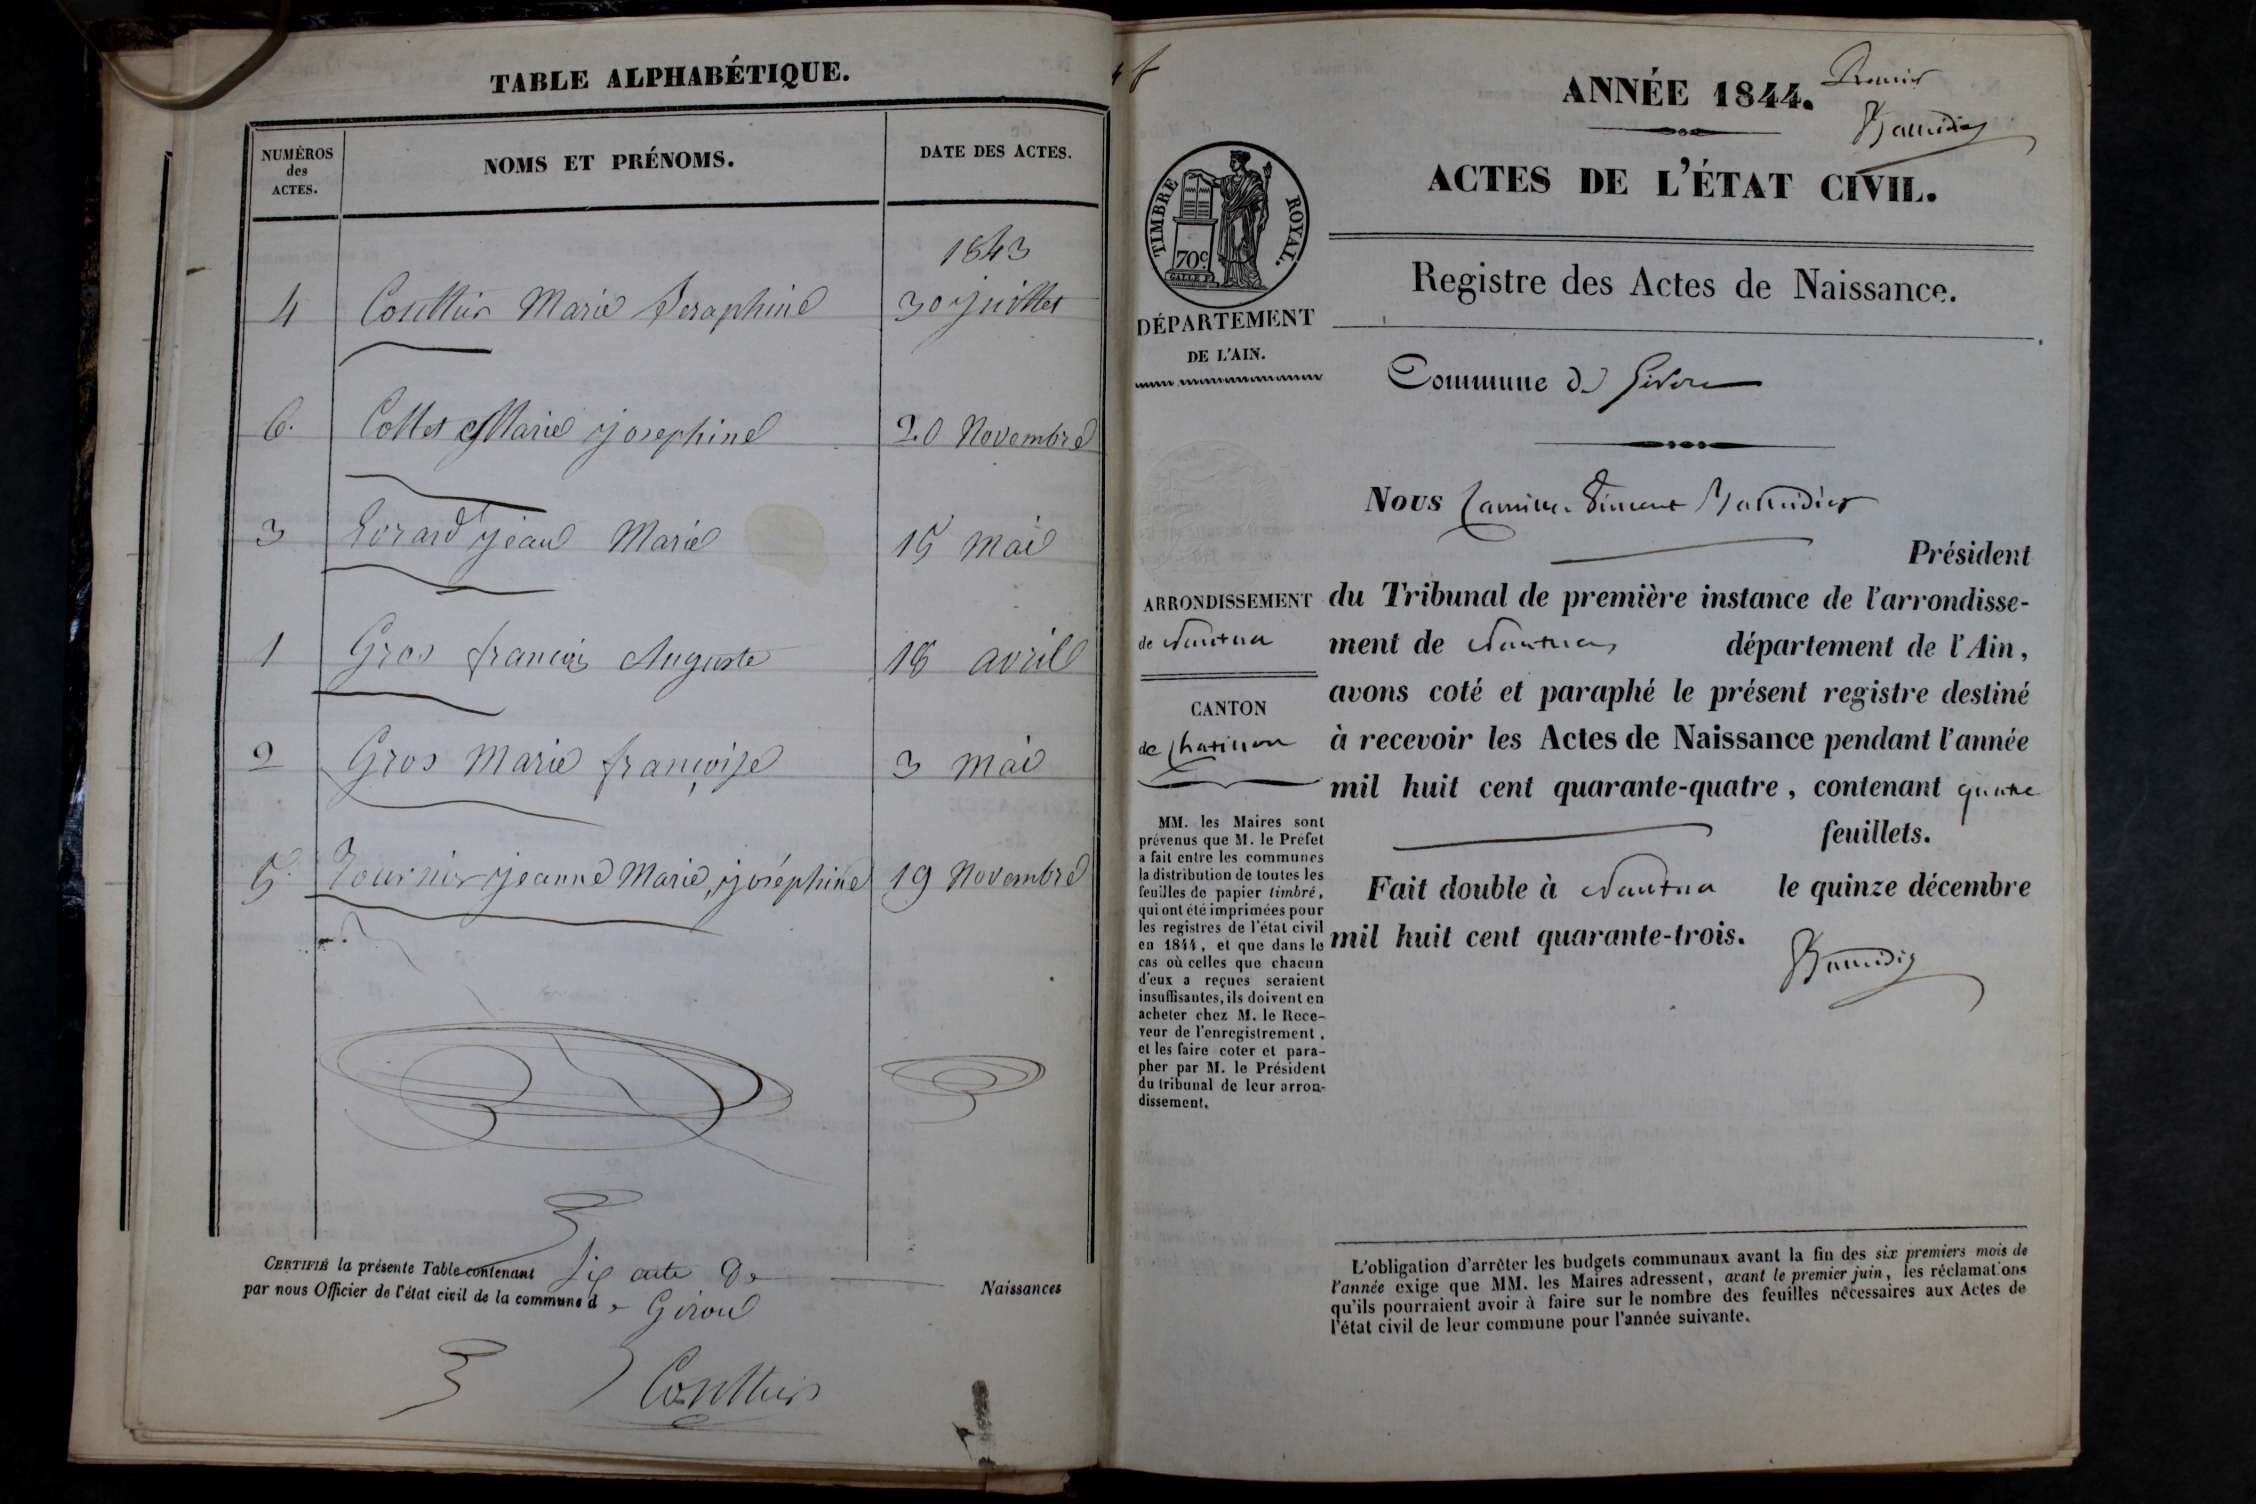 TABLE ALPHABÉTIQUE.
NUMÉROS
des
ACTES.
NOMS ET PRÉNOMS.
DATE DES ACTES.
1843
4 Marie Seraphine 30 juillet
6. Collet Marie josephine 20 Novembre
3 jean Marie 15 mai
1 Gros françois Auguste 18 avril
2 Gros Marie françoise 3 mai
5 Tournier jeanne Marie, joséphine 19 Novembre
CERTIFIÉ la présente Table contenant Six acte De
par nous Officier de l'état civil de la commune d e Giron Naissances
ANNÉE 1844.
ACTES DE L'ÉTAT CIVIL.
TIMBRE ROYAL.
70c
GALLE F.
Registre des Actes de Naissance.
DÉPARTEMENT
DE L'AIN.
Commune de Giron
Nous
Président
ARRONDISSEMENT
de Nantua
CANTON
de Chatillon
du Tribunal de première instance de l'arrondisse-
ment de Nantua département de l'Ain,
avons coté et paraphé le présent registre destiné
à recevoir les Actes de Naissance pendant l'année
mil huit cent quarante-quatre, contenant quatre
feuillets.
Fait double à Nantua le quinze décembre
mil huit cent quarante-trois.
MM. les Maires sont
prévenus que M. le Préfet
a fait entre les communes
la distribution de toutes les
feuilles de papier timbré,
qui ont été imprimées pour
les registres de l'état civil
en 1844, et que dans le
cas où celles que chacun
d'eux a reçues seraient
insuffisantes, ils doivent en
acheter chez M. le Rece-
veur de l'enregistrement,
et les faire coter et para-
pher par M. le Président
du tribunal de leur arron-
dissement.
L'obligation d'arrêter les budgets communaux avant la fin des six premiers mois de
l'année exige que MM. les Maires adressent, avant le premier juin, les réclamations
qu'ils pourraient avoir à faire sur le nombre des feuilles nécessaires aux Actes de
l'état civil de leur commune pour l'année suivante.